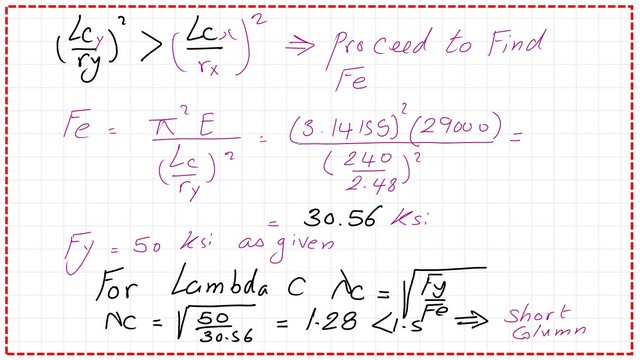 (Lcy/ry)² > (Lcx/rx)² ⇒ Proceed to Find
Fe
Fe = π² E / (Lc/ry)² = (3.14155)² (29000) / (240/2.48)² =
= 30.56 Ksi
Fy = 50 Ksi as given
For Lambda C λc = √(Fy/Fe)
λc = √(50/30.56) = 1.28 < 1.5 ⇒ short
column